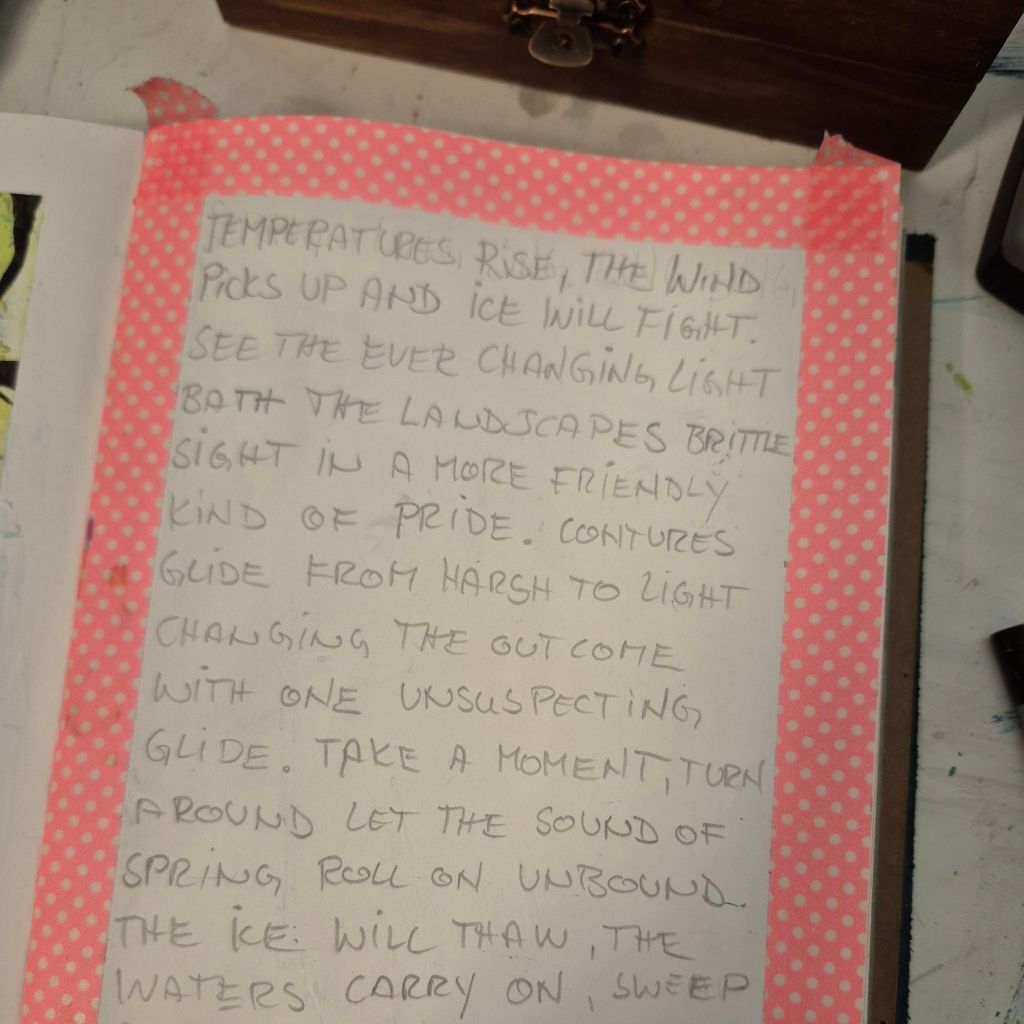 TEMPERATURES RISE, THE WIND
PICKS UP AND ICE WILL FIGHT.
SEE THE EVER CHANGING LIGHT
BATH THE LANDSCAPES BRITTLE
SIGHT IN A MORE FRIENDLY
KIND OF PRIDE. CONTURES
GLIDE FROM HARSH TO LIGHT
CHANGING THE OUTCOME
WITH ONE UNSUSPECTING
GLIDE. TAKE A MOMENT, TURN
AROUND LET THE SOUND OF
SPRING ROLL ON UNBOUND.
THE ICE WILL THAW, THE
WATERS CARRY ON, SWEEP